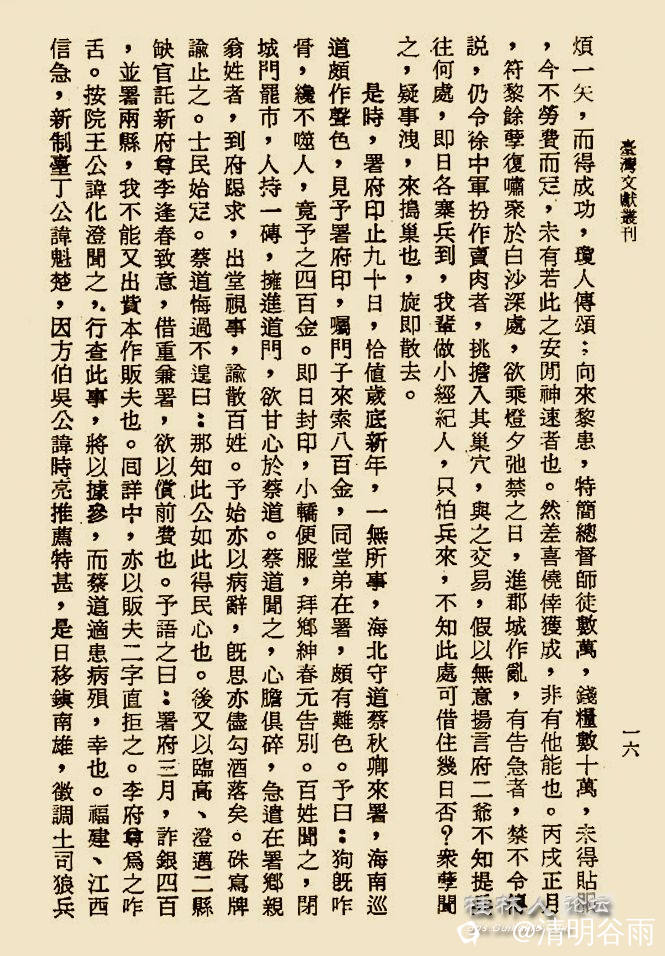 臺灣文獻叢刊
一六
煩一矢,而得成功,瓊人傳頌:向來黎患,特簡總督師徒數萬,錢糧數十萬,未得貼即
,今不勞費而定,未有若此之安閒神速者也。然差喜僥倖獲成,非有他能也。丙戌正月
,符黎餘孽復嘯聚於白沙深處,欲乘燈夕弛禁之日,進郡城作亂,有告急者,禁不令傳
説,仍令徐中軍扮作賣肉者,挑擔入其巢穴,與之交易,假以無意揚言府二爺不知提兵
往何處,即日各寨兵到,我輩做小經紀人,只怕兵來,不知此處可借住幾日否?衆孽聞
之,疑事洩,來搗巢也,旋即散去。
是時,署府印止九十日,恰値歲底新年,一無所事,海北守道蔡秋卿來署,海南巡
道頗作聲色,見予署府印,囑門子來索八百金,同堂弟在署,頗有難色。予曰:狗旣咋
骨,纔不噬人,竟予之四百金。即日封印,小轎便服,拜鄉紳春元告別。百姓聞之,閉
城門罷市,人持一磚,擁進道門,欲甘心於蔡道。蔡道聞之,心膽俱碎,急遣在署鄉親
翁姓者,到府跽求,出堂視事,諭散百姓。予始亦以病辭,旣思亦儘勾酒落矣。硃寫牌
諭止之。士民始定。蔡道悔過不遑曰:那知此公如此得民心也。後又以臨高、澄邁二縣
缺官託新府尊李逢春致意,借重兼署,欲以償前費也。予語之曰:署府三月,詐銀四百
,並署兩縣,我不能又出貲本作販夫也。囘詳中,亦以販夫二字直拒之。李府尊爲之咋
舌。按院王公諱化澄聞之,行查此事,將以據參,而蔡道適患病殞,幸也。福建、江西
信急,新制臺丁公諱魁楚,因方伯吳公諱時亮推薦特甚,是日移鎭南雄,徵調土司狼兵
桂林人 论坛
@清明谷雨